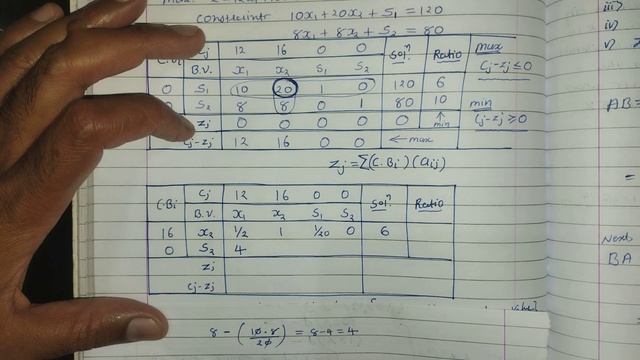 constraint 10x₁+20x₂ + S₁ = 120
8x₁ + 8x₂ + S₂ = 80
C.Bi Cj 12 16 0 0 Sol? Ratio max
B.V. x₁ x₂ S₁ S₂ Cj-Zj ≤ 0
0 S₁ 10 20 1 0 120 6
0 S₂ 8 8 0 1 80 10 min
Zj 0 0 0 0 0 ↑ min Cj-Zj ≥ 0
Cj-Zj 12 16 0 0 ← max
Zj = Σ(C.Bi)(aij)
C.Bi Cj 12 16 0 0 Sol? Ratio
B.V. x₁ x₂ S₁ S₂
16 x₂ 1/2 1 1/20 0 6
0 S₂ 4
Zj
Cj-Zj
8 - (10·8/20) = 8-4 = 4
iii)
iv)
v)
AB=
=
Next
BA